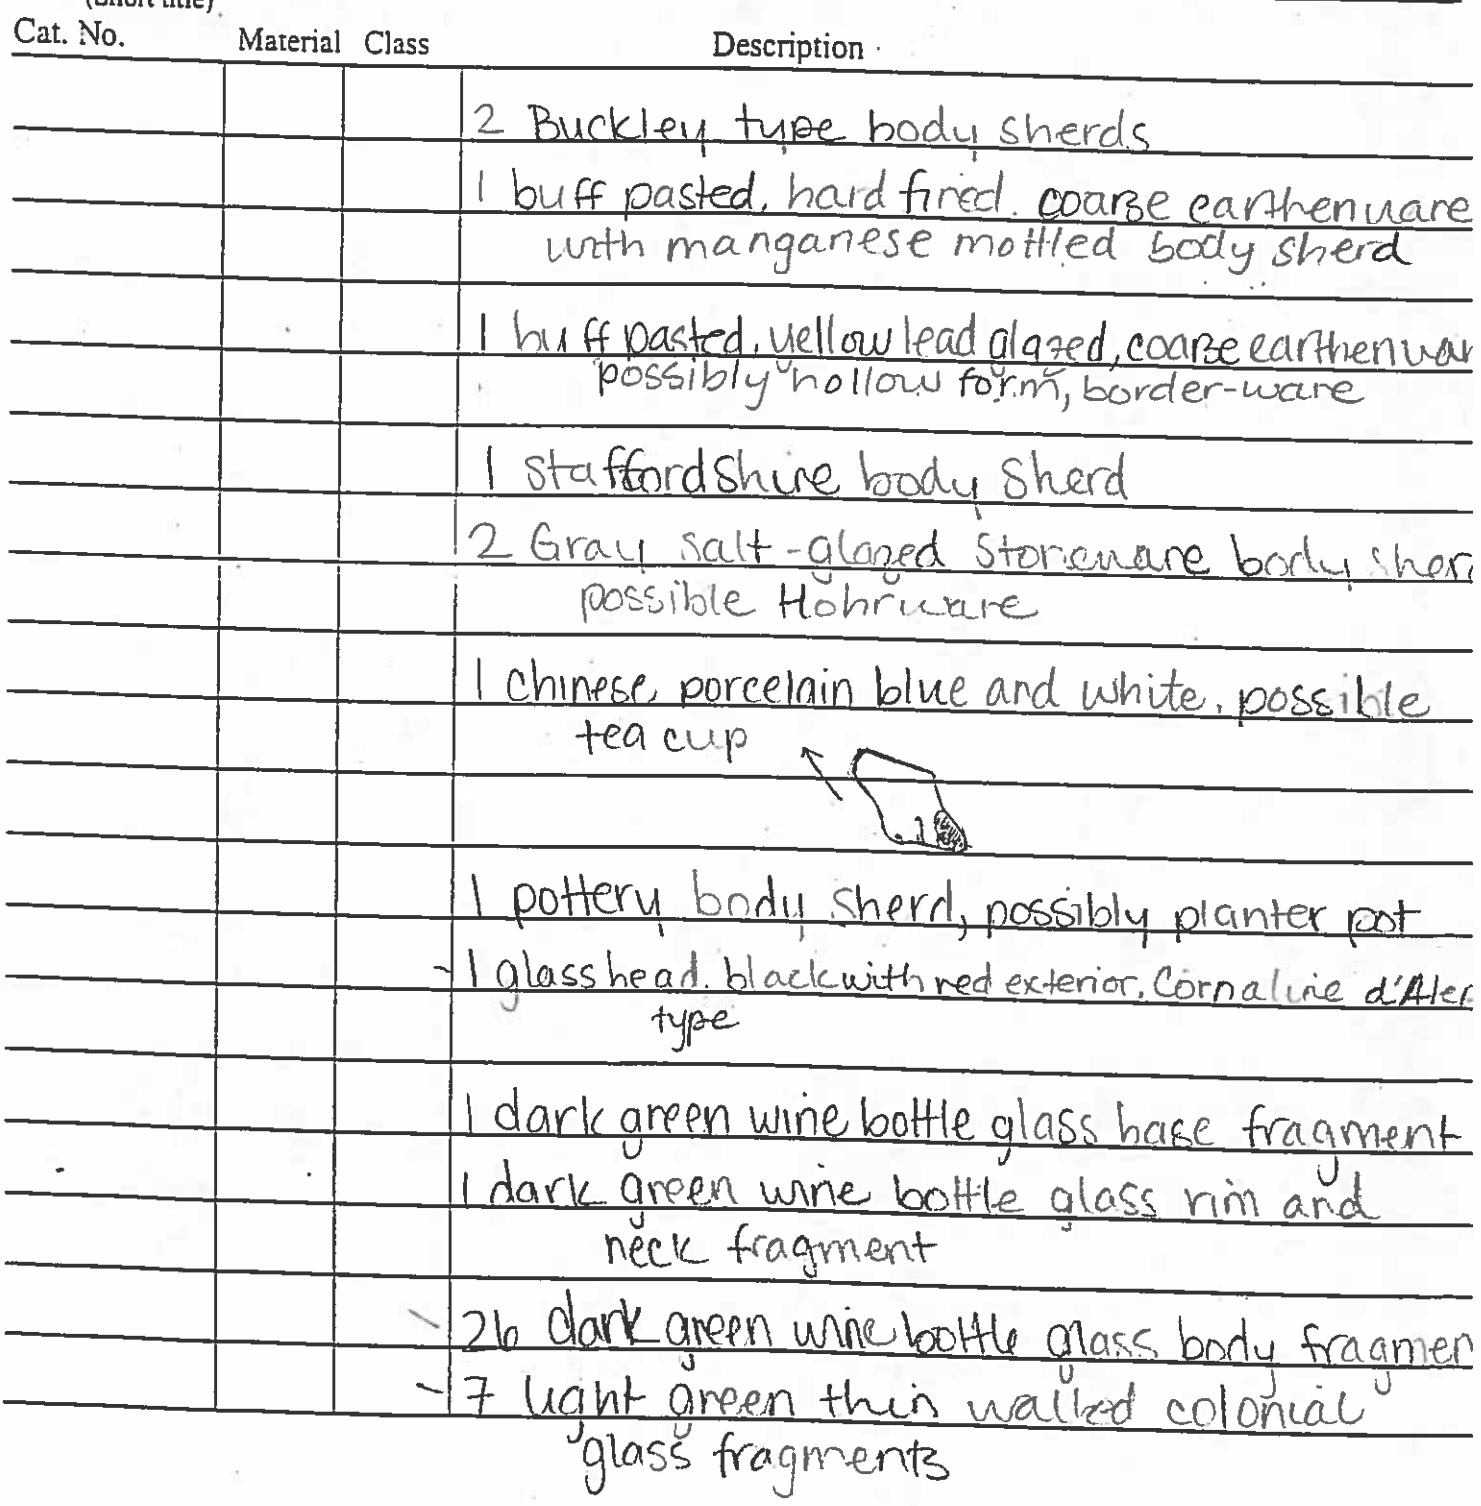 (Short title)
Cat. No. Material Class Description
2 Buckley type body sherds
1 buff pasted, hard fired. coarse earthenware
with manganese mottled body sherd
1 buff pasted, yellow lead glazed, coarse earthenwar
possibly hollow form, border-ware
1 Staffordshire body sherd
2 Gray salt-glazed stoneware body sher
possible Höhrware
1 Chinese porcelain blue and white, possible
tea cup
1 pottery body sherd, possibly planter pot
- 1 glass bead. black with red exterior, Cornaline d'Alep
type
1 dark green wine bottle glass base fragment
1 dark green wine bottle glass rim and
neck fragment
- 26 dark green wine bottle glass body fragmen
- 7 light green thin walled colonial
glass fragments